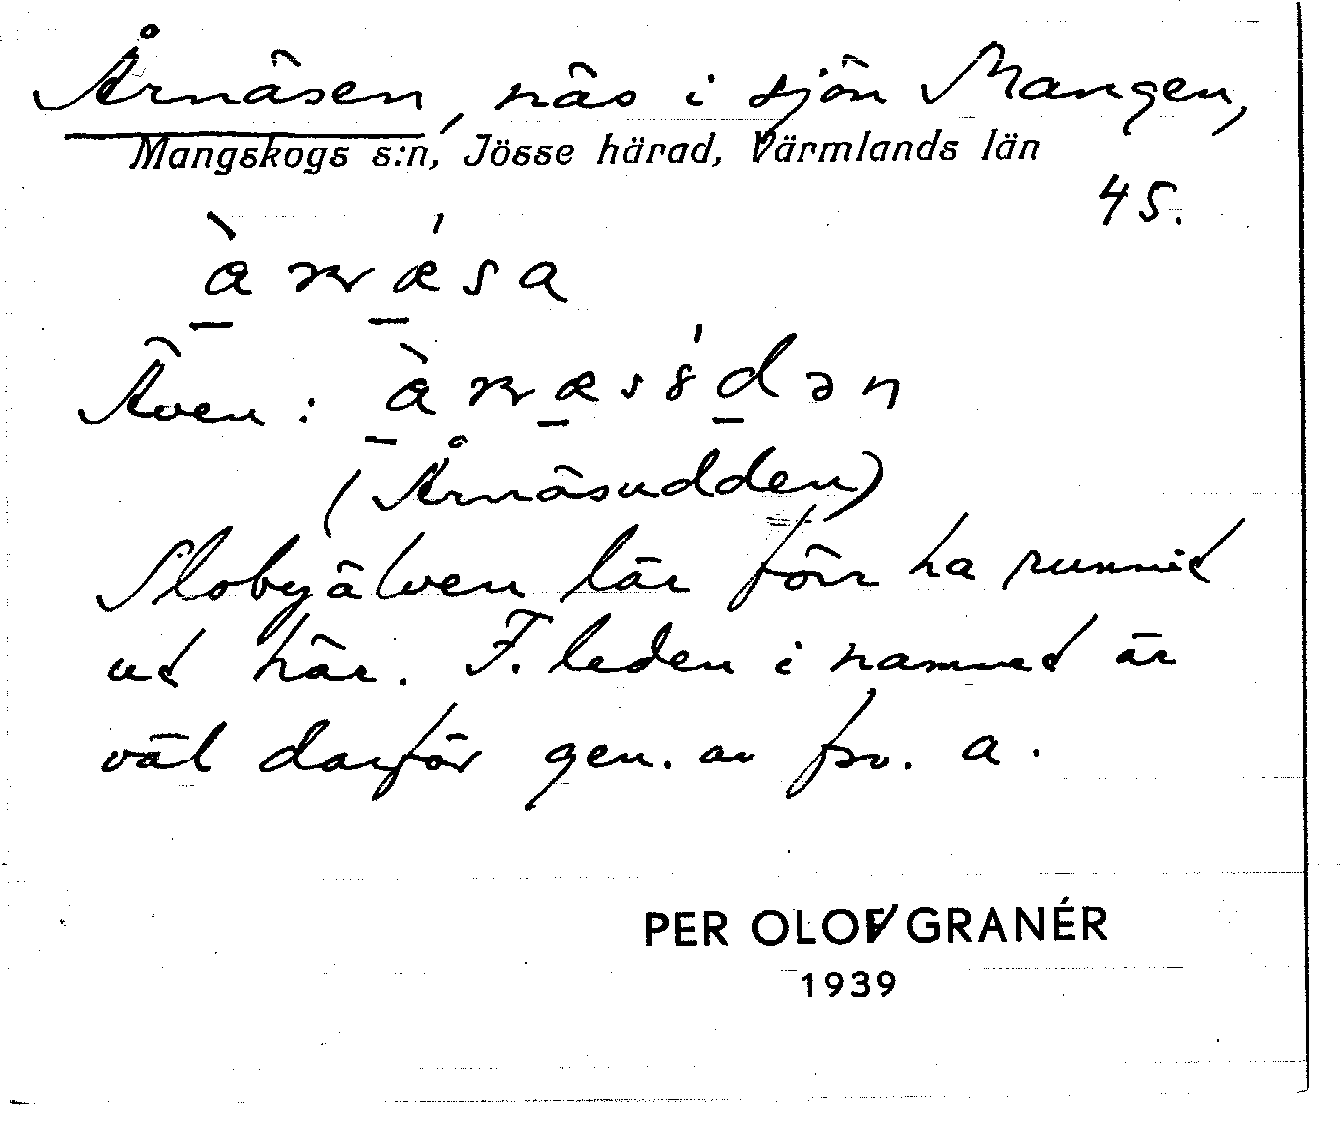 Årnäsen, näs i sjön Mangen,
Mangskogs s:n, Jösse härad, Värmlands län
45.
Även:
(Årnäsudden)
Slobyälven lär förr ha runnit
ut här. F. leden i namnet är
väl därför gen. av fsv. a.
PER OLOF GRANÉR
1939